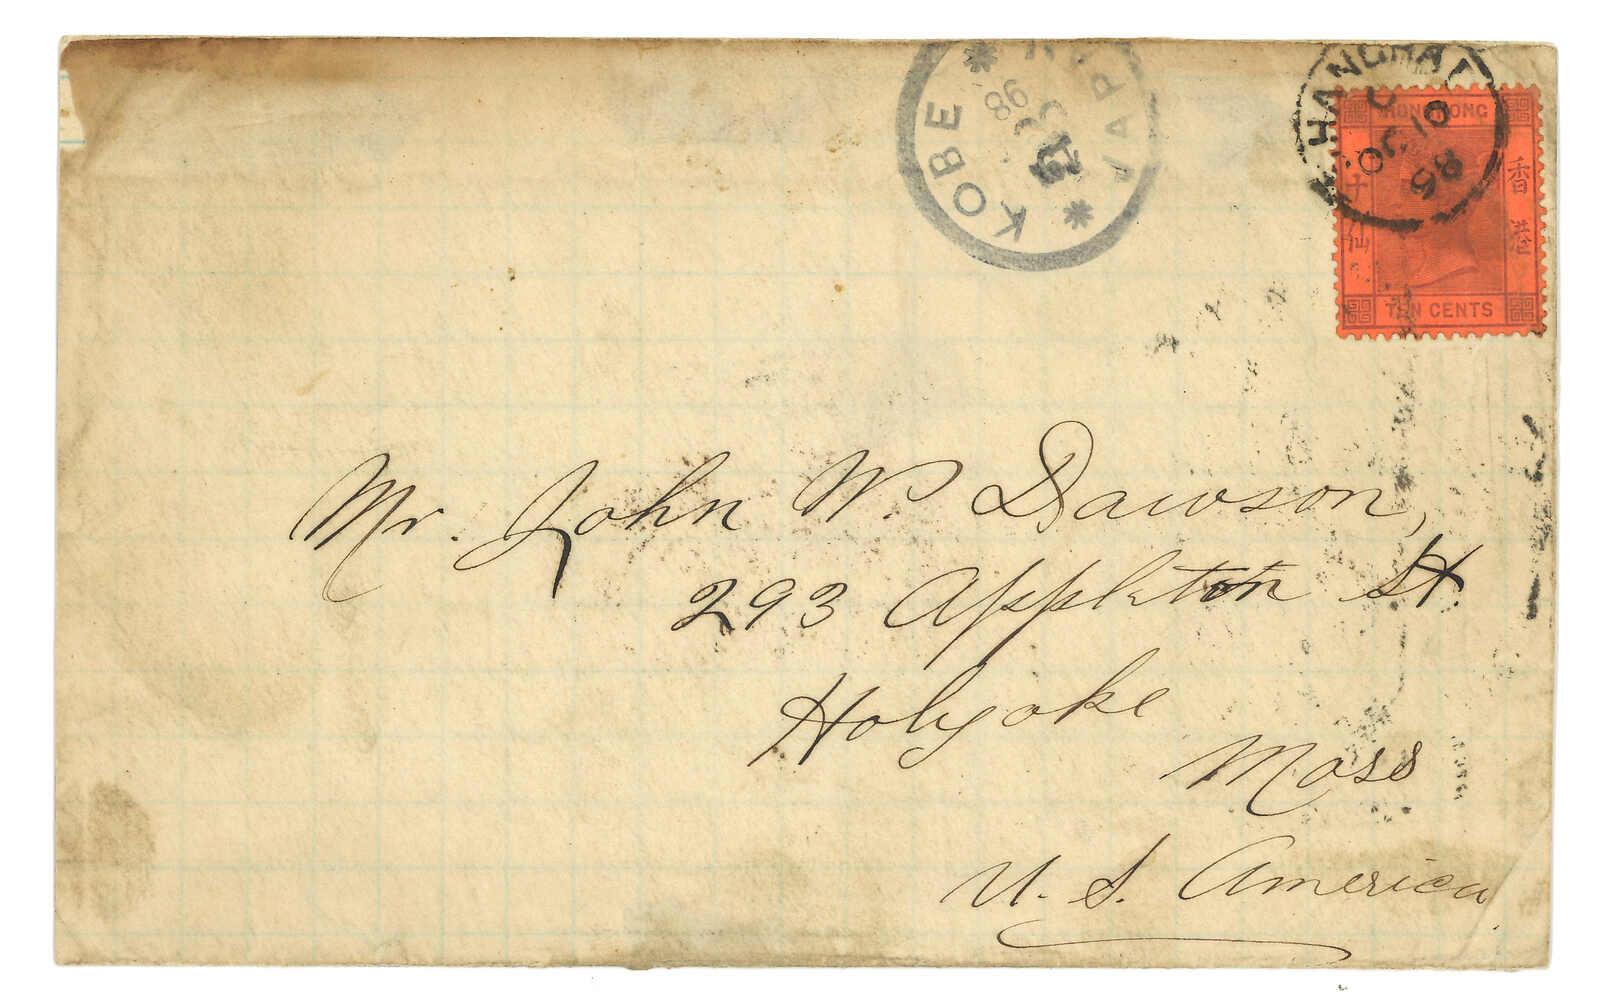 KOBE
JAP
98
SHANGHAI
C
OC 10
98
HONG KONG
香港
十
仙
TEN CENTS
Mr. John W. Dawson,
293 Appleton St.
Holyoke
Mass
U. S. America